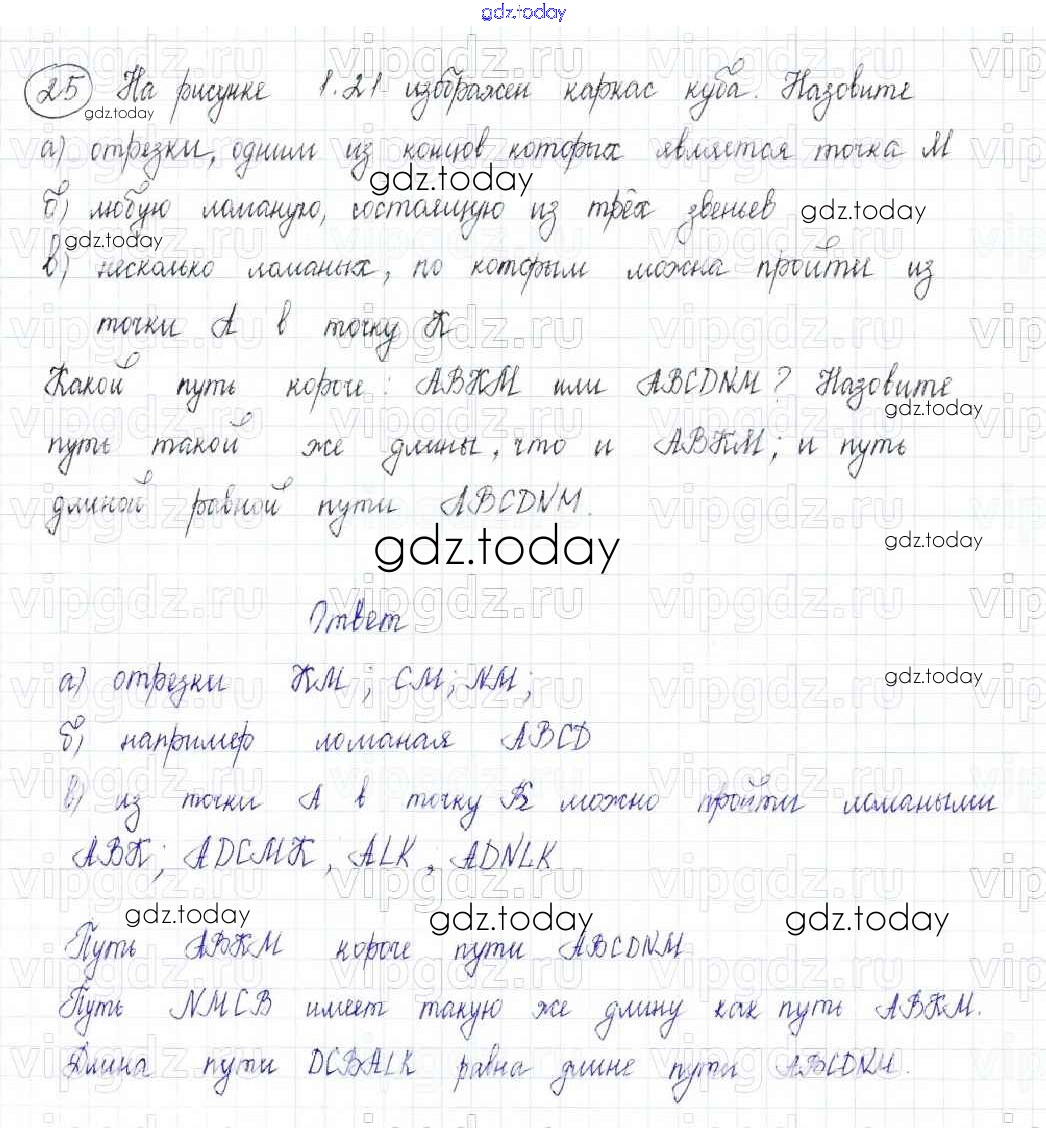 gdz.today
25 На рисунке 1.21 изображен каркас куба. Назовите
gdz.today
а) отрезки, одним из концов которых является точка М
gdz.today
б) любую ломаную, состоящую из трёх звеньев gdz.today
gdz.today
в) несколько ломаных, по которым можна пройти из
точки А в точку К
Какой путь короче: АВКМ или ABCDNM? Назовите
gdz.today
путь такой же длины, что и АВКМ; и путь
длиной равной пути ABCDNM.
gdz.today gdz.today
Ответ
а) отрезки КМ; СМ; NM;
gdz.today
б) например ломаная ABCD
в) из точки А в точку К можно пройти ломаными
АВК; ADCMK, ALK, ADNLK
gdz.today gdz.today gdz.today
Путь АВКМ короче пути ABCDNM
Путь NMCB имеет такую же длину как путь АВКМ.
Длина пути DCBALK равна длине пути ABCDNM.
vipgdz.ru